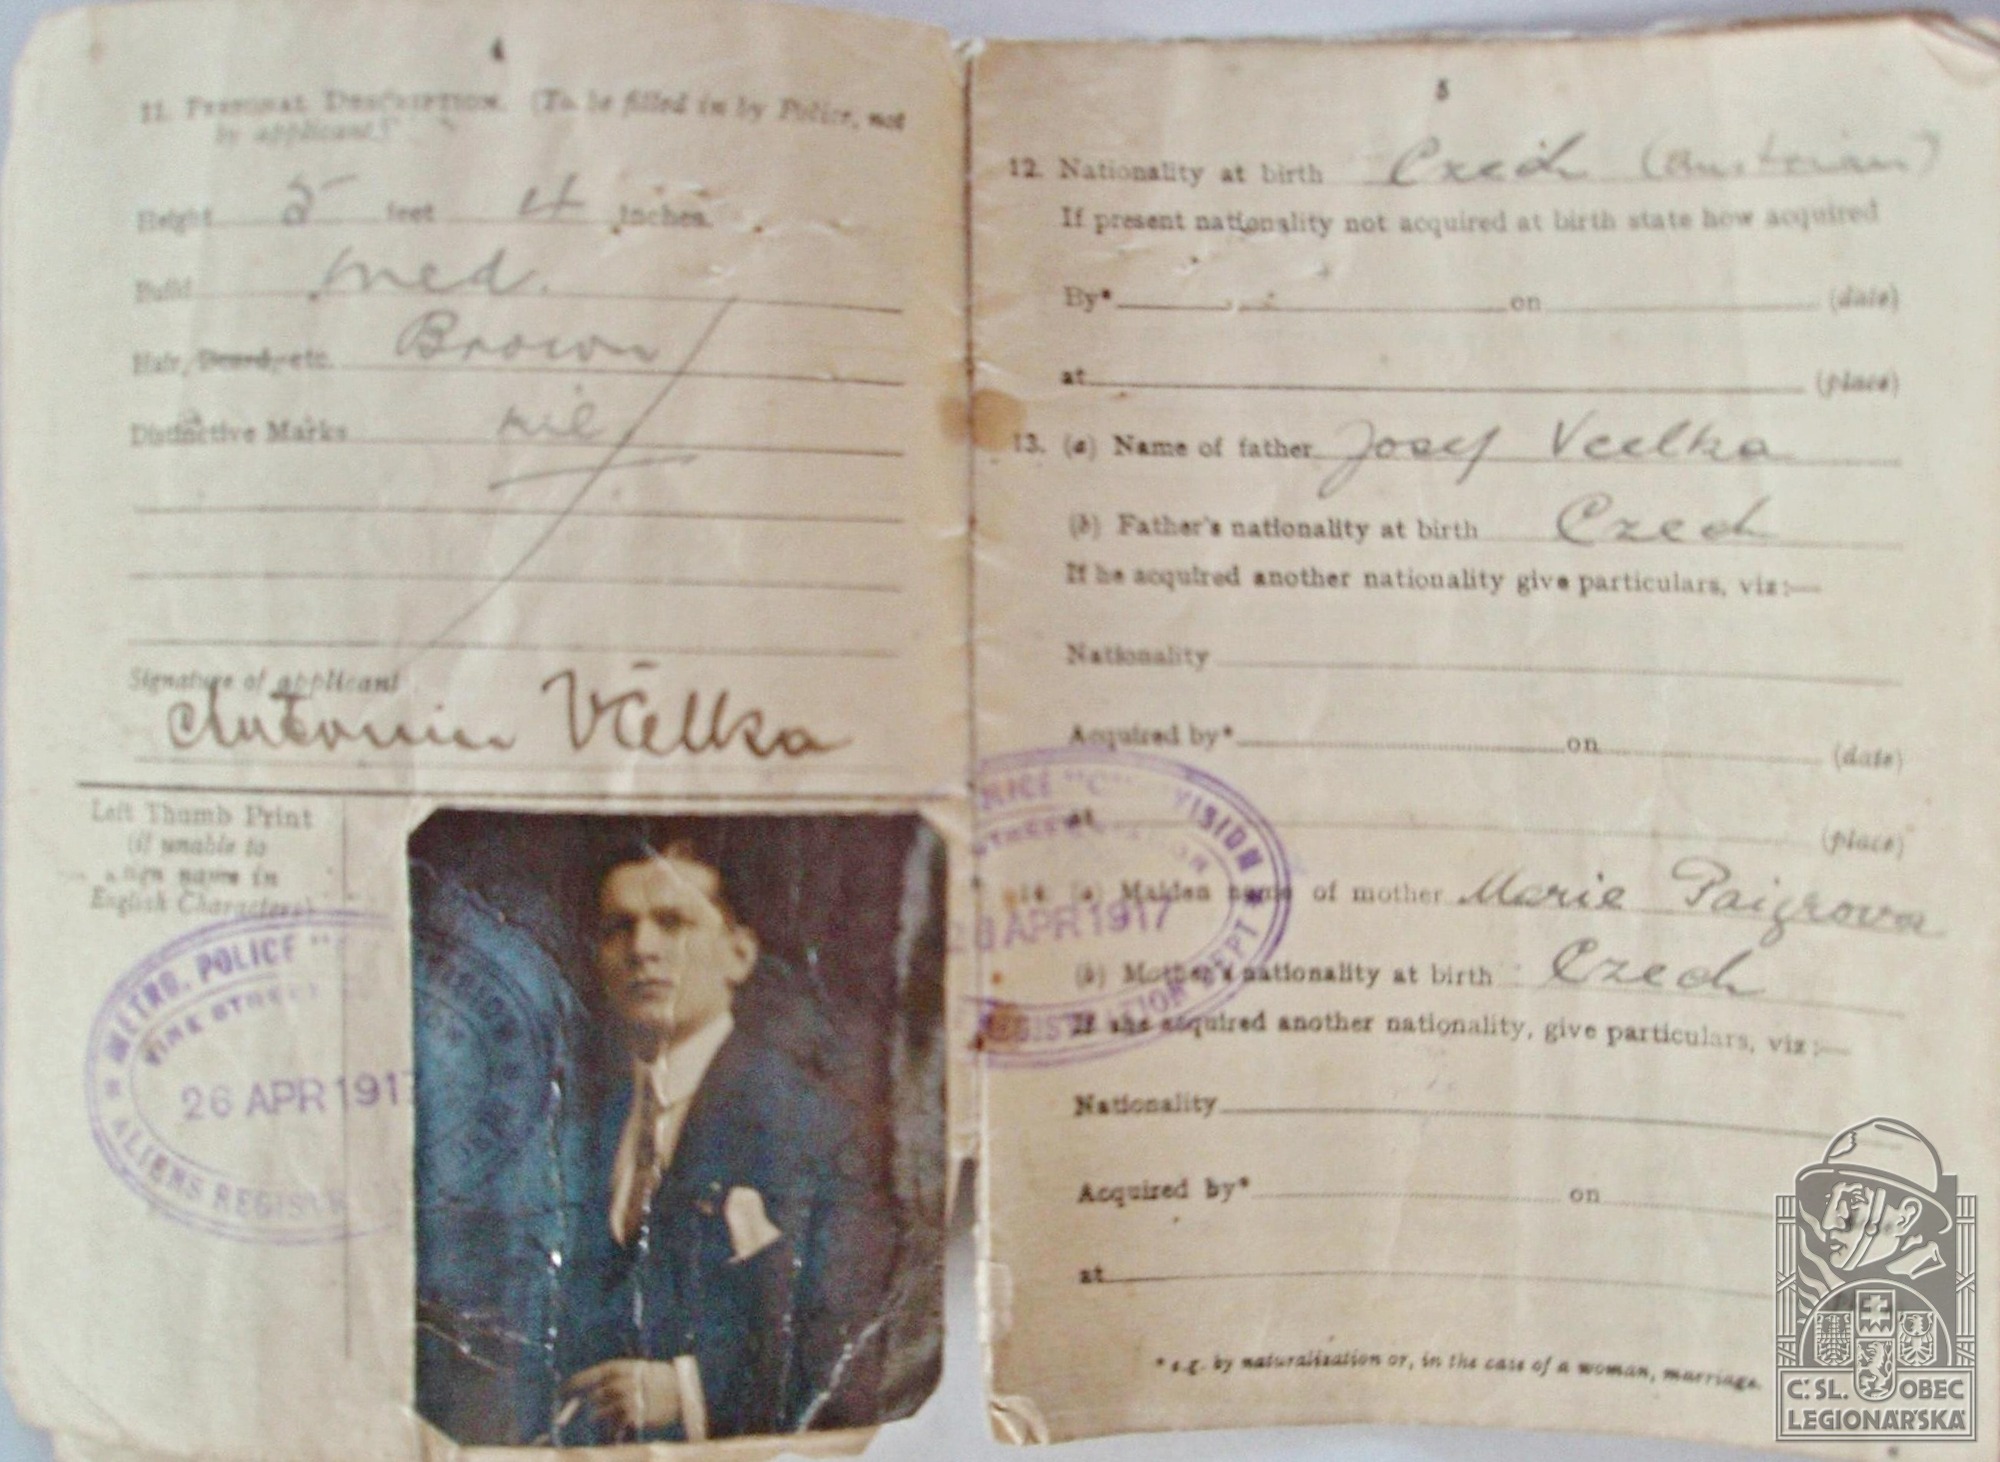 4
11. PERSONAL DESCRIPTION. (To be filled in by Police, not
by applicant.)
Height 5 feet 4 inches.
Build med.
Hair, Beard, etc. Brown
Distinctive Marks nil
Signature of applicant
Antonin Včelka
Left Thumb Print
(if unable to
sign name in
English Characters)
METRO. POLICE "
VINE STREET
26 APR 1917
ALIENS REGISTR
5
12. Nationality at birth Czech (Austrian)
If present nationality not acquired at birth state how acquired
By* on (date)
at (place)
13. (a) Name of father Josef Vcelka
(b) Father's nationality at birth Czech
If he acquired another nationality give particulars, viz:—
Nationality
Acquired by* on (date)
at (place)
14. (a) Maiden name of mother Marie Paigrova
(b) Mother's nationality at birth Czech
If she acquired another nationality, give particulars, viz:—
Nationality
Acquired by* on
at
* e.g. by naturalization or, in the case of a woman, marriage.
LICE "C" VISION
26 APR 1917
REGISTRATION DEPT
Č.SL. OBEC
LEGIONÁŘSKÁ